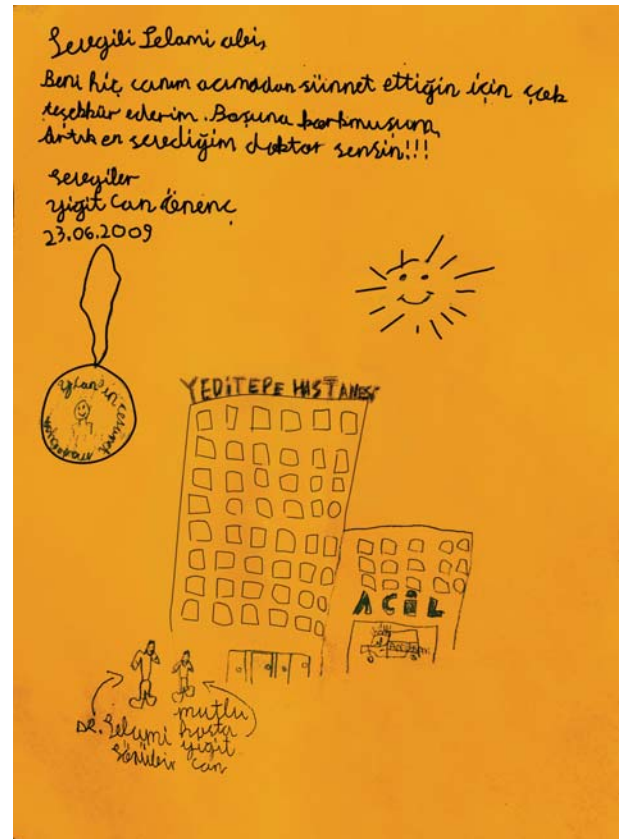 Sevgili Selami abi,
Beni hiç canım acımadan sünnet ettiğin için çok
teşekkür ederim. Boşuna korkmuşum,
Artık en sevdiğim doktor sensin!!!
Sevgiler
Yiğit Can
23.06.2009
YEDİTEPE HASTANESİ
ACİL
cesaret
DR. Selami
mutlu
hasta
yiğit
can